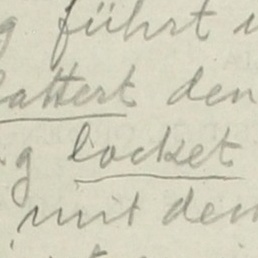 g führt
attert den
g locket
mit dem